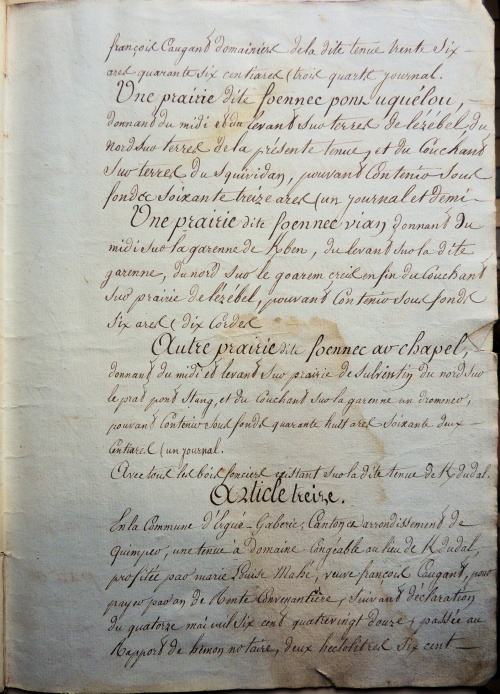 françois Caugant domainier de la dite tenue trente six
ares quarante six centiares (trois quarts journal.
Une prairie dite foennec pont uquélou,
donnant du midi et du levant sur terres de lézébel, du
nord sur terres de la présente tenue, et du Couchant
sur terres du Squividan, pouvant Contenir sous
fonds soixante treize ares (un journal et demi
Une prairie dite foennec vian donnant du
midi sur la garenne de Kben, du levant sur la dite
garenne, du nord sur le goarem creis en fin du Couchant
sur prairie de lézébel, pouvant Contenir sous fonds
six ares (dix Cordes
Autre prairie dite foennec ar chapel,
donnant du midi et levant sur prairie de du nord sur
le prat pont Stang, et du Couchant sur la garenne an dromener,
pouvant Contenir sous fonds quarante huit ares soixante deux
Centiares (un journal.
Avec tous les bois fonciers existant sur la dite tenue de Kdudal.
Article treize.
En la Commune d'Ergué-Gaberic, Canton et arrondissement de
quimper, une tenue à Domaine Congéable au lieu de Kdudal,
profitée par marie Louise Mahé, veuve françois Caugant, pour
payer par an de Rente Convenancière, suivant déclaration
du quatorze mai mil six cent quatrevingt douze, passée au
Rapport de hemon notaire, deux hectolitres six cent